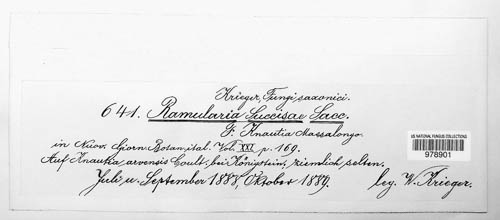 Krieger, Fungi saxonici.
641. Ramularia Succisae Sacc.
F. Knautia Massalongo
in Nuov. Giorn. Botan. ital. Vol. XXI p. 169.
Auf Knautia arvensis Coult. bei Königstein, ziemlich selten.
Juli u. September 1888, Oktober 1889. leg. W. Krieger.
US NATIONAL FUNGUS COLLECTIONS
978901